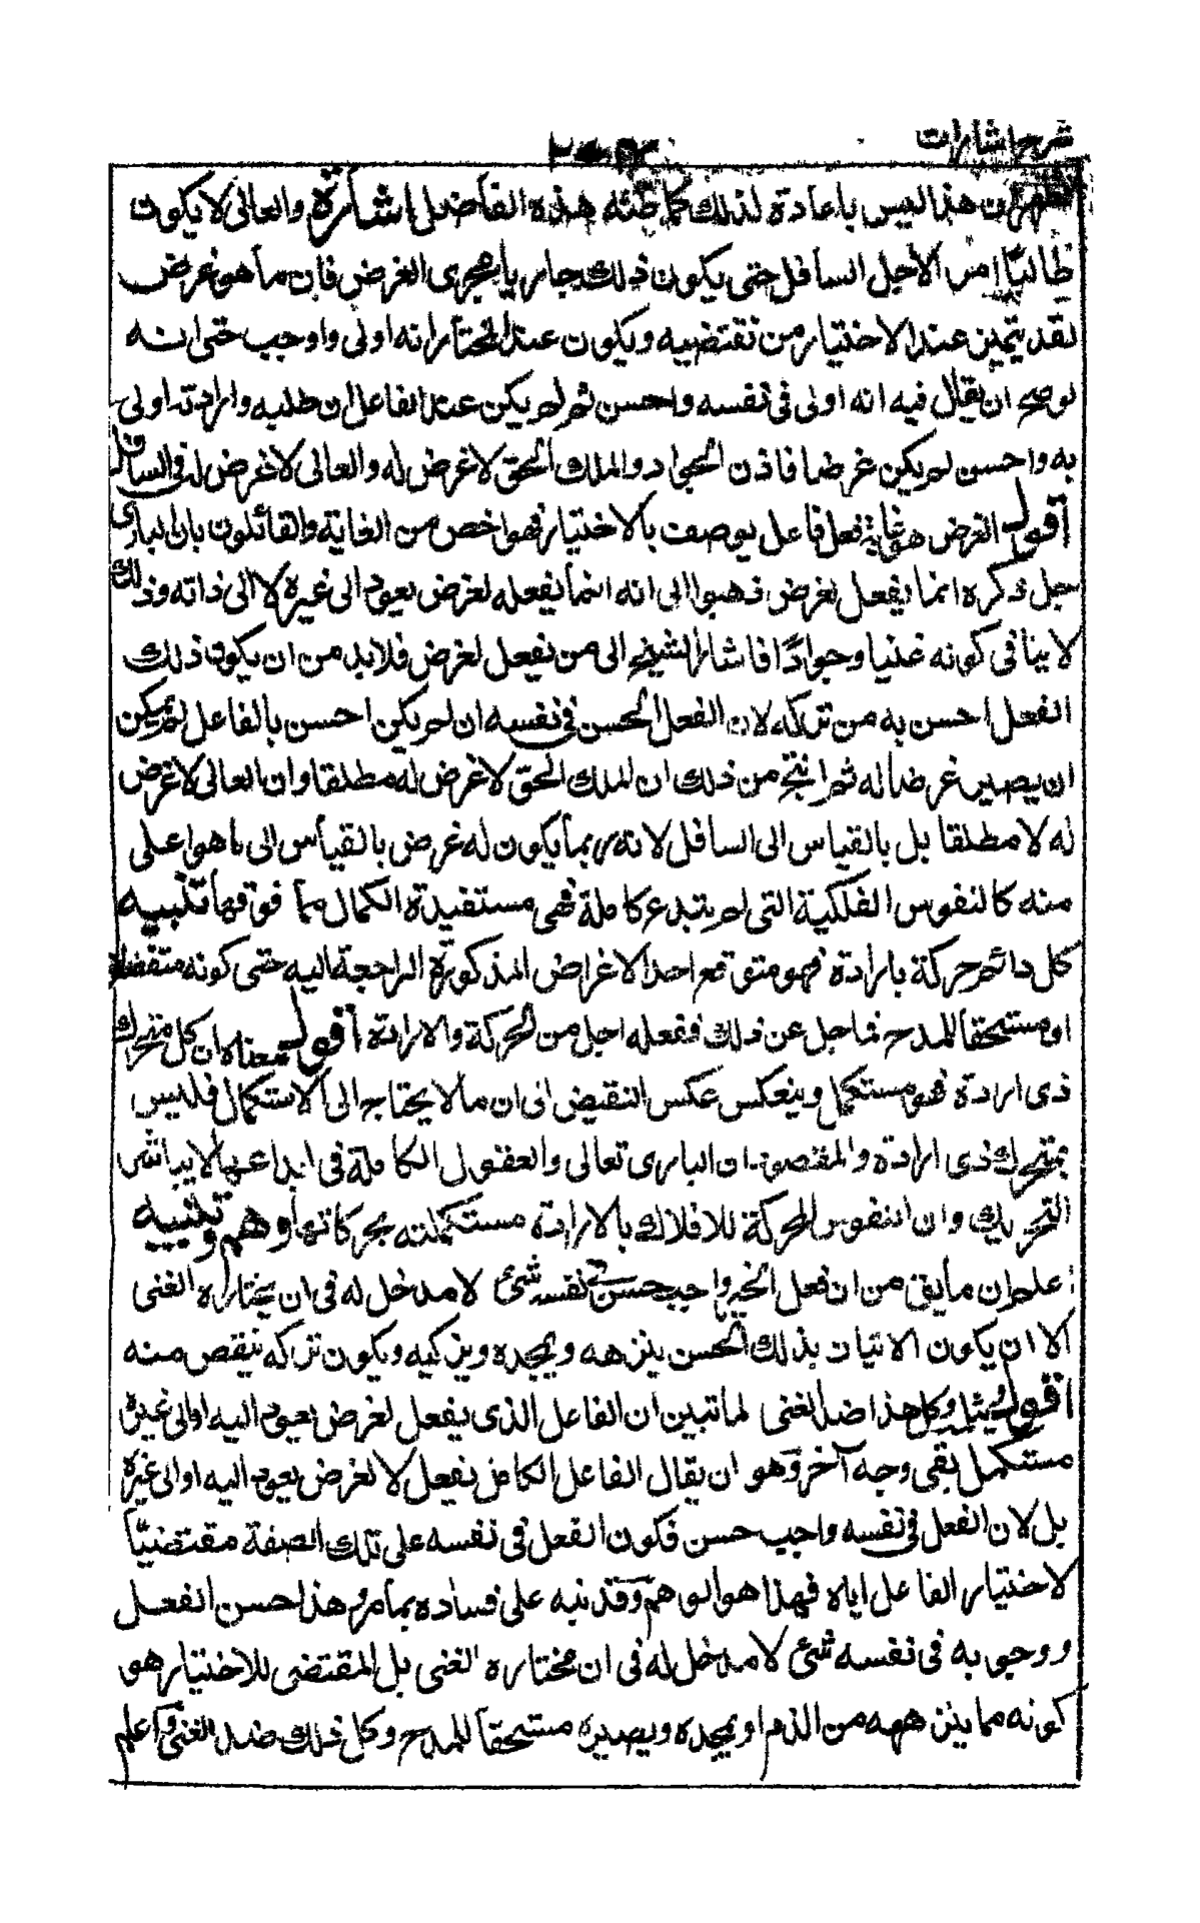 شرح اشارات
ان هذا ليس باعادة لذلك كما ظنه هذه الفاضل اشارة والعالى لا يكون
طالبا امرا لاجل السافل حتى يكون ذلك جاريا مجرى الغرض فان ما هو غرض
لقد يتميز عند الاختيار من نقيضه ويكون عند المختار انه اولى واوجب حتى انه
لو صح ان يقال فيه انه اولى فى نفسه واحسن ثم لم يكن عند الفاعل ان طلبه وارادته اولى
به واحسن لم يكن غرضا فاذن الجواد والملك الحق لا غرض له والعالى لا غرض له فى السافل
اقول الغرض هو غاية فعل فاعل يوصف بالاختيار فهو اخص من الغاية والقائلون بان البارى
جل ذكره انما يفعل لغرض ذهبوا الى انه انما يفعله لغرض يعود الى غيره لا الى ذاته وذلك
لا ينافى كونه غنيا وجوادًا فاشار الشيخ الى من يفعل لغرض فلابد من ان يكون ذلك
الفعل احسن به من تركه لان الفعل الحسن فى نفسه ان لم يكن احسن بالفاعل لم يمكن
ان يصير غرضا له ثم انتج من ذلك ان الملك الحق لا غرض له مطلقا وان العالى لا غرض
له لا مطلقا بل بالقياس الى السافل لانه ربما يكون له غرض بالقياس الى ما هو اعلى
منه كالنفوس الفلكية التى لم يبتدع كاملة فهى مستفيدة الكمال مما فوقها تنبيه
كل دائم حركة بارادة فهو متوقع احد الاغراض المذكورة الراجعة اليه حتى كونه متفضلا
او مستحقا للمدح فما جل عن ذلك ففعله اجل من الحركة والارادة اقول معناه ان كل متحرك
ذى ارادة فهو مستكمل وينعكس عكس النقيض الى ان ما لا يحتاج الى الاستكمال فليس
بمتحرك ذى ارادة والمقصود ان البارى تعالى والعقول الكاملة فى ابداعها لا يباشر
التحريك وان النفوس المحركة للافلاك بالارادة مستكملته بحركاتها وهم وتنبيه
اعلم ان ما يق من ان فعل الخير واجب حسن فى نفسه شئ لا مدخل له فى ان يختاره الغنى
الا ان يكون الاتيان بذلك الحسن ينزهه ويمجده ويزكيه ويكون تركه ينقص منه
ويثلمه وكل هذا ضد الغنى اقول لما تبين ان الفاعل الذى يفعل لغرض يعود اليه او الى غيره
مستكمل بقى وجه آخر وهو ان يقال الفاعل الكامل يفعل لا لغرض يعود اليه او الى غيره
بل لان الفعل فى نفسه واجب حسن فكون الفعل فى نفسه على تلك الصفة مقتضيًّا
لاختيار الفاعل اياه فهذا هو الوهم وقد نبه على فساده بما مر وهذا حسن الفعل
ووجوبه فى نفسه شئ لا مدخل له فى ان مختاره الغنى بل المقتضى للاختيار هو
كونه مما ينزهه من الذم او يمجده ويصيره مستحقا للمدح وكل ذلك ضد الغنى واعلم